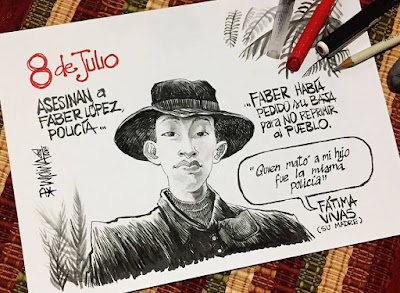 8 de Julio
ASESINAN a
FABER LÓPEZ,
POLICÍA...
...FABER HABÍA
PEDIDO su BAJA
para NO REPRIMIR
al PUEBLO.
"Quien mató a mi hijo
fue la misma
policía"
FÁTIMA
VIVAS
(SU MADRE)